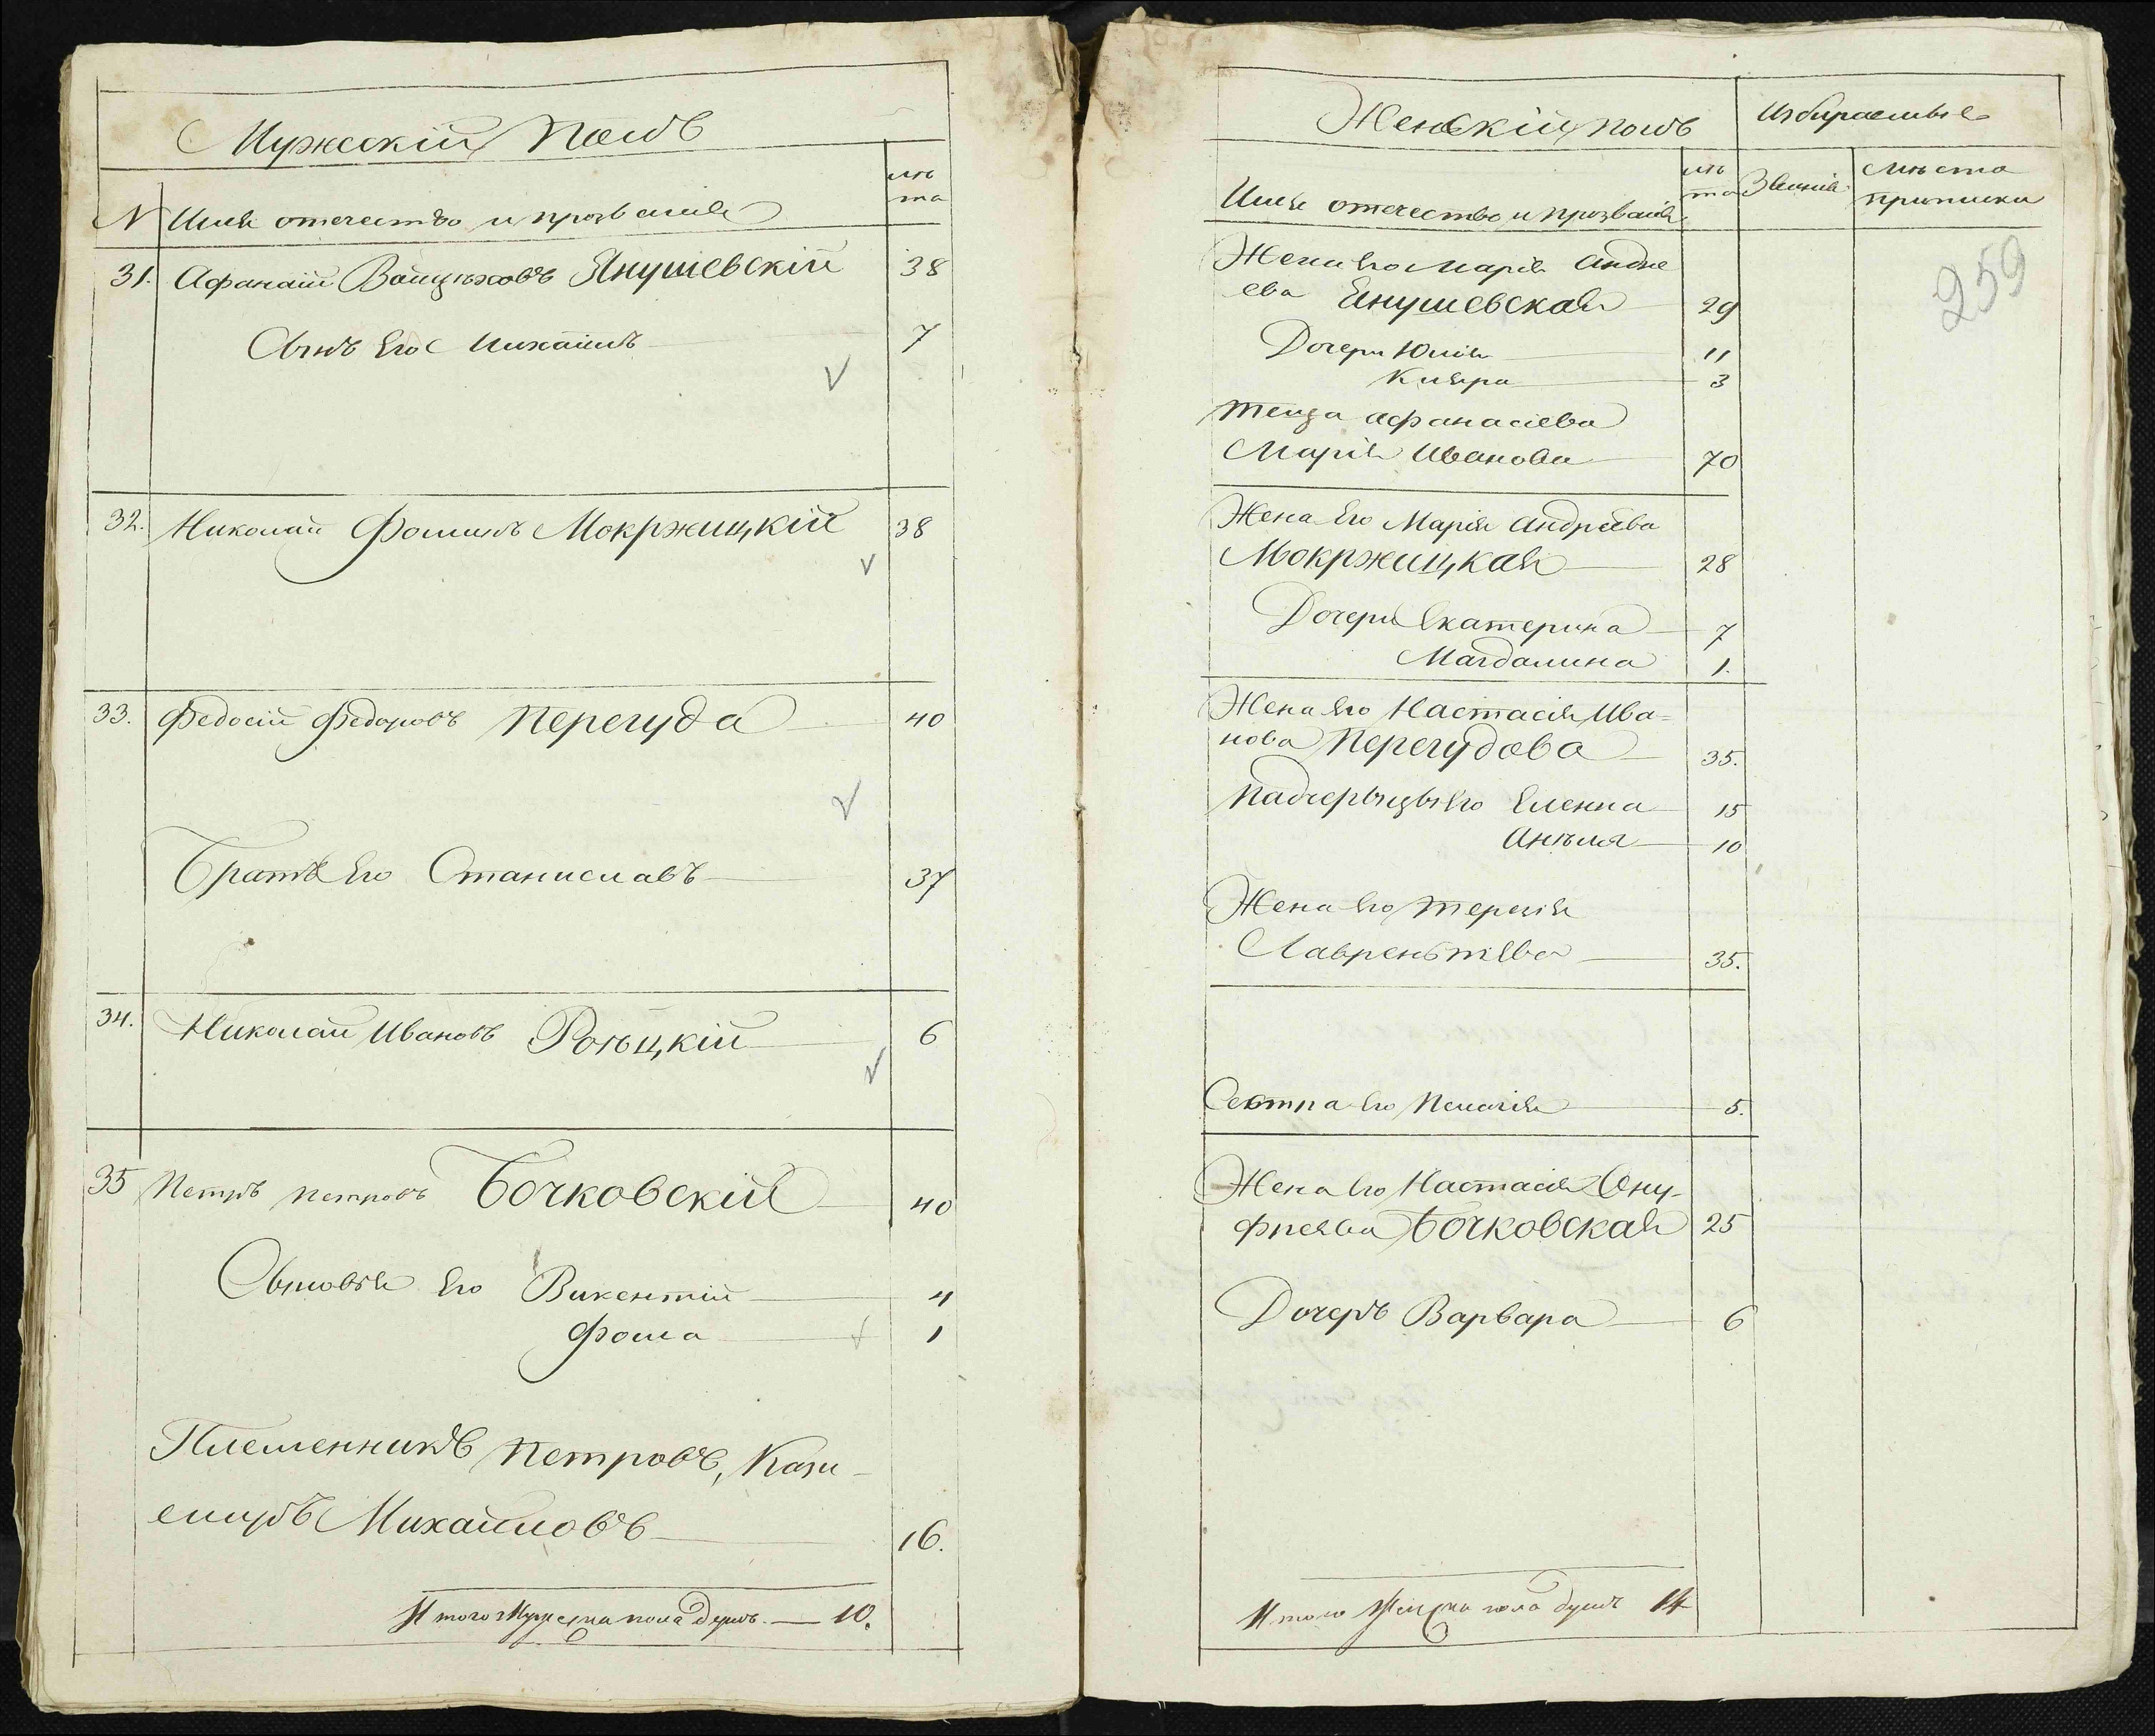 Мужескій полъ
лѣ
та
N Имя отечество и прозваніе
31. Афанасій Войцѣховъ Янушевскій 38
Сынъ Его Михаилъ 7
32. Николай Фоминъ Мокржицкій 38
33. Федосій Федоровъ Перегуда 40
Братъ Его Станиславъ 37
34. Николай Ивановъ Рогоцкій 6
35 Петръ Петровъ Бочковскій 40
Сыновья Его Викентій 4
Фома 1
Племенникъ Петровъ, Кази-
емиръ Михайловъ 16.
Итого Мужеска пола душъ — 10.
Женскій полъ
Избираемые
лѣ
та
Званія
Мѣста
приписки
Имя отечество и прозваніе
259
Жена Его Марія Андре
ева Янушевская 29
Дочери Юлія 11
Кляра 3
Теща Афанасіева
Марія Иванова 70
Жена Его Марія Андреева
Мокржицкая 28
Дочери Екатерина 7
Магдалина 1.
Жена Его Настасія Ива=
нова Перегудова 35.
Падчерыцы Его Еленна 15
Анѣля 10
Жена Его Терезія
Лаврентьева 35.
Сестра Его Пелагія 5.
Жена Его Настасія Ону-
фріева Бочковская 25
Дочерь Варвара 6
Итого Женска пола душъ 14